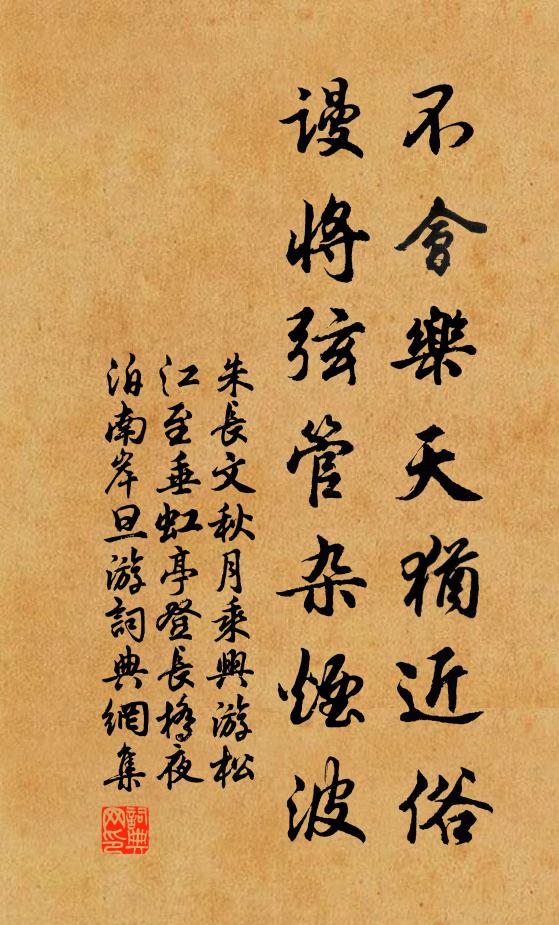 不會樂天猶近俗
謾將弦管杂煙波
朱長文秋月乘興游松
江至垂虹亭登長橋夜
泊南岸旦游詞典網集
詞典
网印